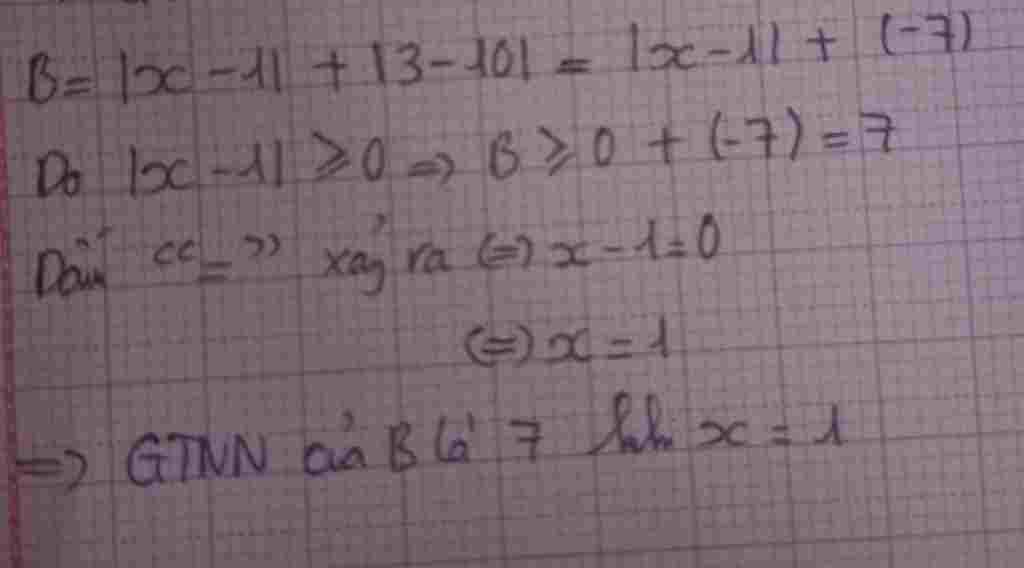 B = |x - 1| + |3 - 10| = |x - 1| + (-7)
Do |x - 1| ≥ 0 => B ≥ 0 + (-7) = 7
Dấu "=" xảy ra (=) x - 1 = 0
(=) x = 1
=> GTNN của B là 7 khi x = 1